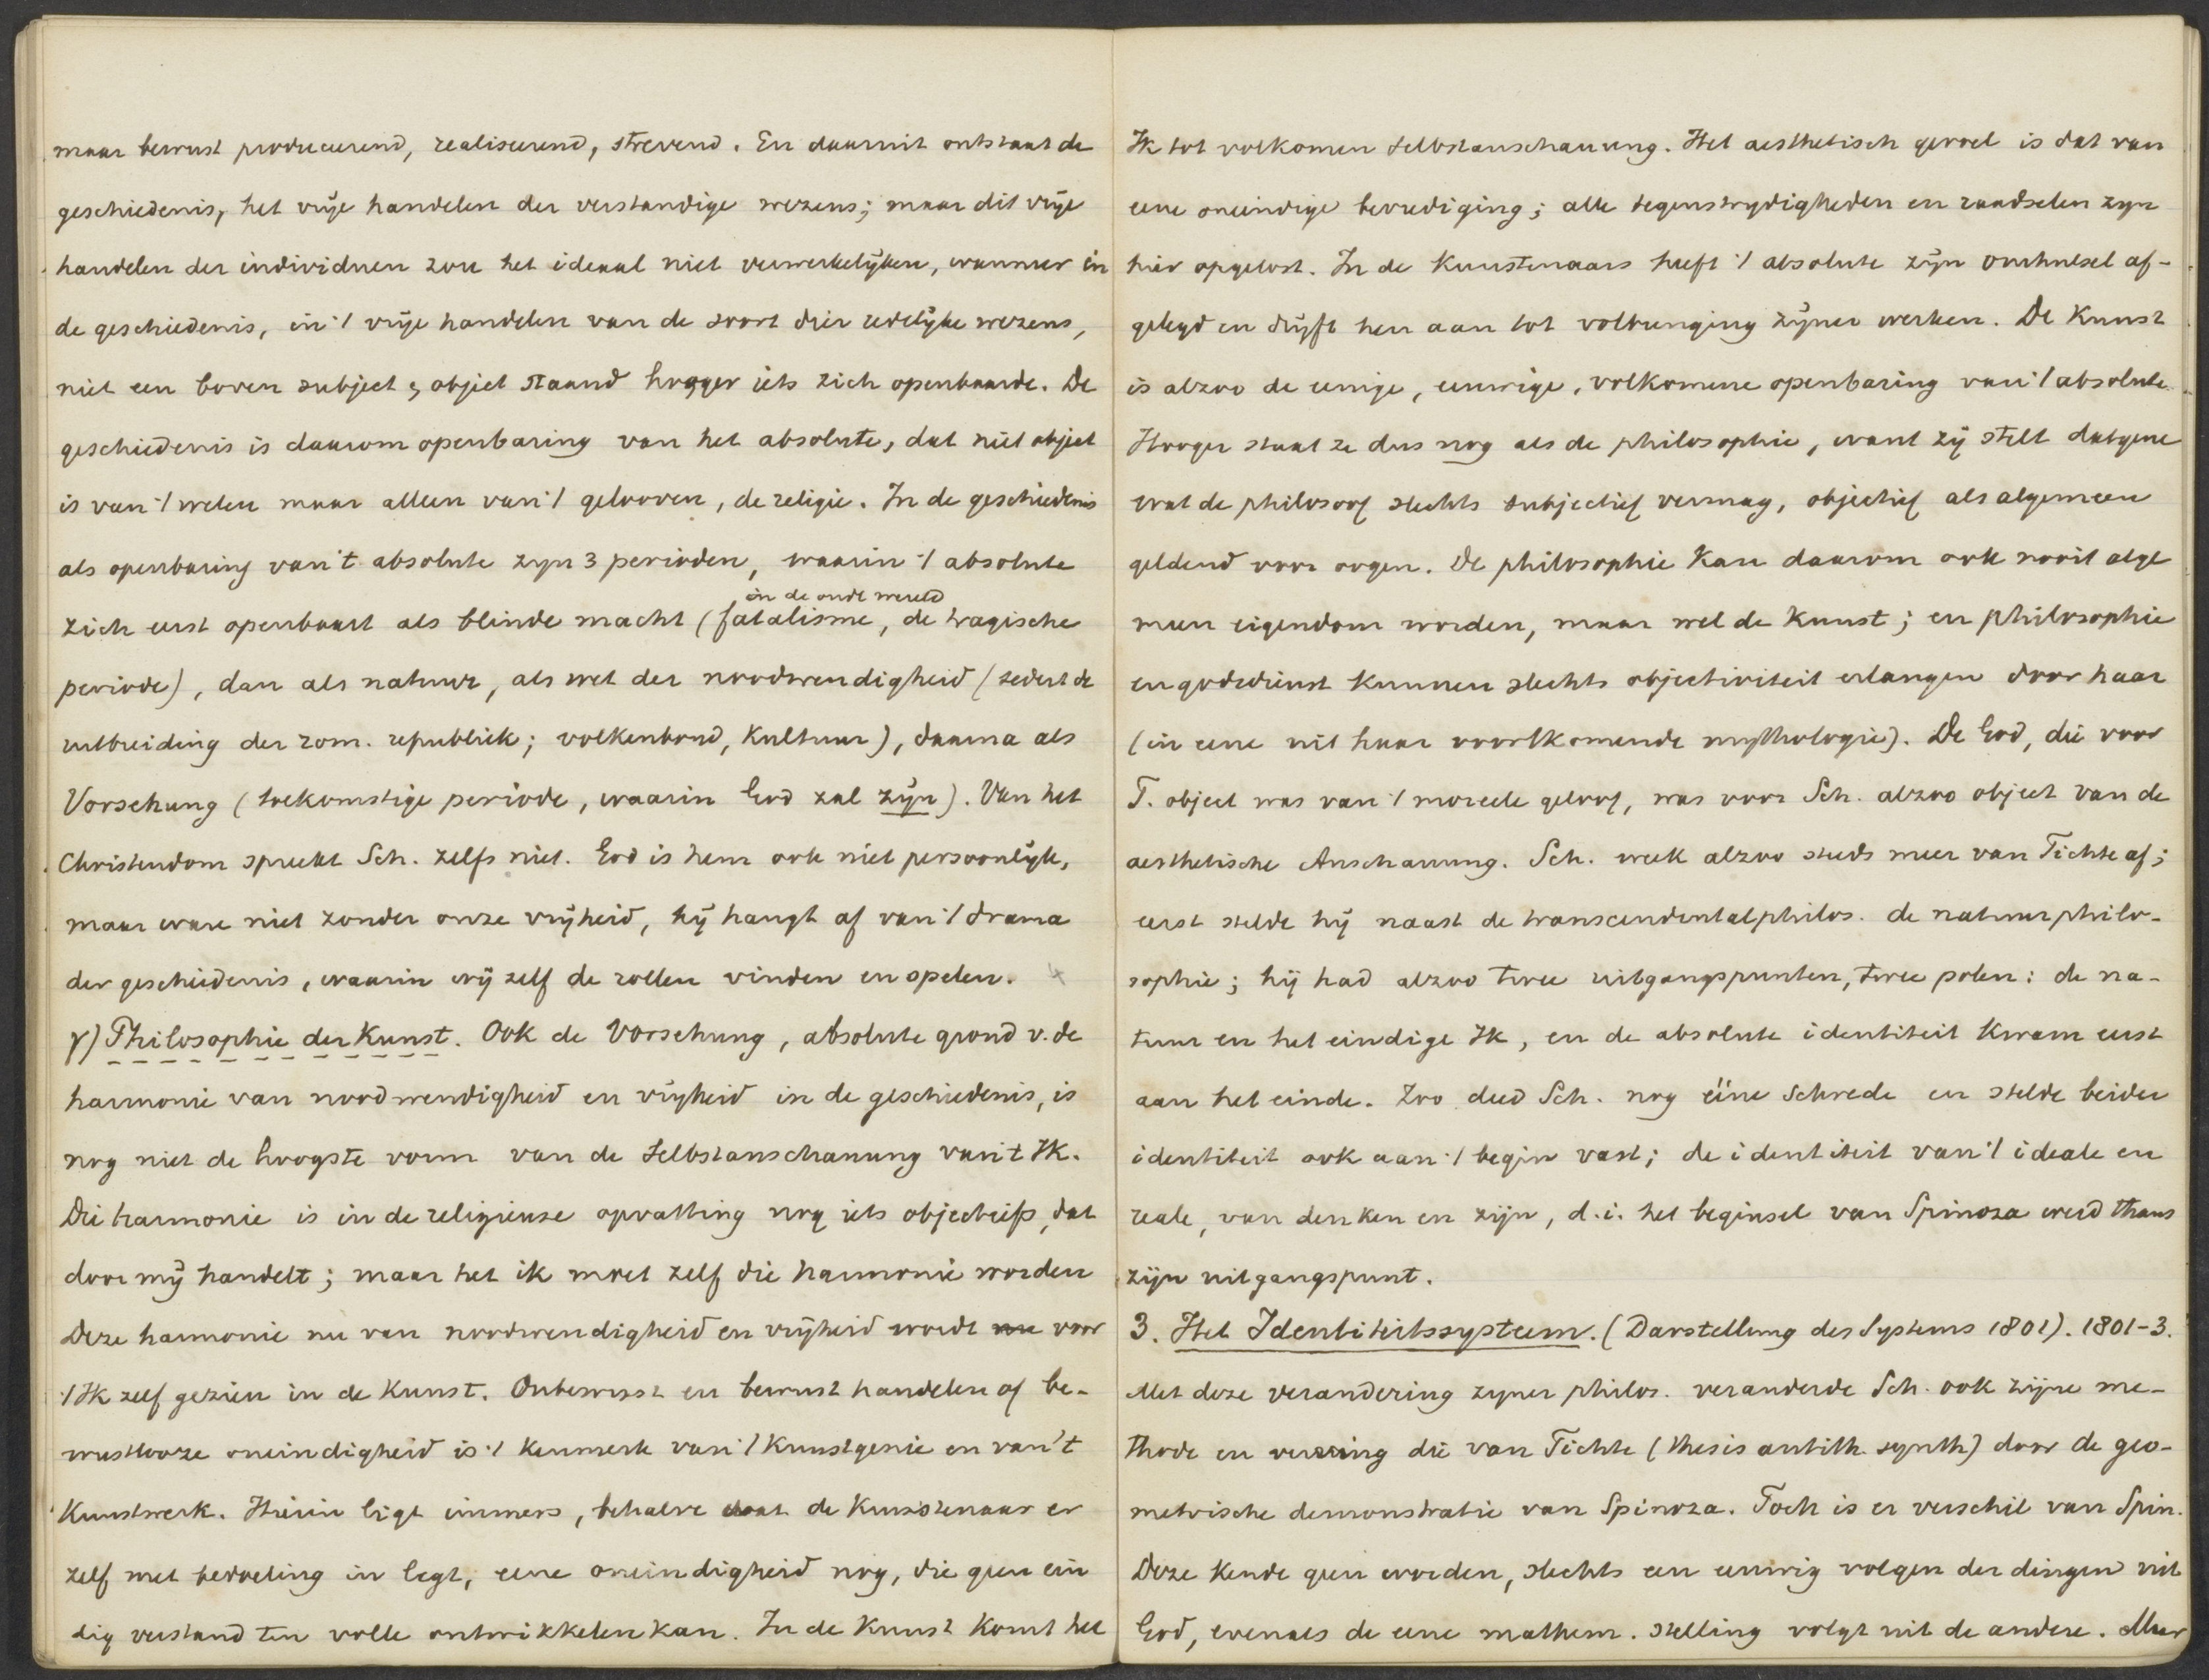 maar bewust produceerend, realiseerend, strevend. En daaruit ontstaat de
geschiedenis, het vrije handelen der verstandige wezens; maar dit vrije
handelen der individuen zou het ideaal niet verwerkelijken, wanneer in
de geschiedenis, in 't vrije handelen van de soort dier redelijke wezens,
niet een boven subject & object staand hooger iets zich openbaarde. De
geschiedenis is daarom openbaring van het absolute, dat niet object
is van 't weten maar alleen van 't gelooven, de religie. In de geschiedenis
als openbaring van 't absolute zyn 3 perioden, waarin 't absolute
in de oude wereld
zich eerst openbaart als blinde macht (fatalisme, de tragische
periode), dan als natuur, als wet der noodwendigheid (sedert de
uitbreiding der rom. republiek; volkenbond, Kultuur), daarna als
Vorsehung (toekomstige periode, waarin God zal zijn). Van het
Christendom spreekt Sch. zelfs niet. God is hem ook niet persoonlijk,
maar ware niet zonder onze vrijheid, hij hangt af van 't drama
der geschiedenis, waarin wij zelf de rollen vinden en spelen. 4
γ) Philosophie der Kunst. Ook de Vorsehung, absolute grond v. de
harmonie van noodwendigheid en vrijheid in de geschiedenis, is
nog niet de hoogste vorm van de Selbstanschauung van 't Ik.
Die harmonie is in de religieuse opvatting nog iets objectiefs, dat
door mij handelt; maar het ik moet zelf die harmonie worden
Deze harmonie nu van noodwendigheid en vrijheid wordt nu voor
't Ik zelf gezien in de Kunst. Onbewust en bewust handelen of be-
wustlooze oneindigheid is 't kenmerk van 't Kunstgenie en van 't
Kunstwerk. Hierin ligt immers, behalve wat de Kunstenaar er
zelf met bedoeling in legt, eene oneindigheid nog, die geen ein
dig verstand ten volle ontwikkelen kan. In de Kunst komt het
Ik tot volkomen Selbstanschauung. Het aesthetisch gevoel is dat van
eene oneindige bevrediging; alle tegenstrydigheden en raadselen zyn
hier opgelost. In de Kunstenaars heeft 't absolute zijn omhulsel af-
gelegd en drijft hen aan tot volbrenging zijner werken. De Kunst
is alzoo de eenige, eeuwige, volkomene openbaring van 't absolute
Hooger staat ze dus nog als de philosophie, want zij stelt datgene
wat de philosoof slechts subjectief vermag, objectief als algemeen
geldend voor oogen. De philosophie kan daarom ook nooit alge
meen eigendom worden, maar wel de Kunst; en philosophie
en godsdienst kunnen slechts objectiviteit erlangen door haar
(in eene uit haar voortkomende mythologie). De God, die voor
F. object was van 't moreele geloof, was voor Sch. alzoo object van de
aesthetische Anschauung. Sch. week alzoo steeds meer van Fichte af;
eerst stelde hij naast de transcendentalphilos. de natuurphilo-
sophie; hij had alzoo twee uitgangspunten, twee polen: de na-
tuur en het eindige Ik, en de absolute identiteit kwam eerst
aan het einde. Zoo deed Sch. nog ééne schrede en stelde beider
identiteit ook aan 't begin vast; de identiteit van 't ideale en
reale, van denken en zijn, d.i. het beginsel van Spinoza werd thans
zijn uitgangspunt.
3. Het Identiteitssysteem. (Darstellung des Systems 1801). 1801-3.
Met deze verandering zyner philos. veranderde Sch. ook zijne me-
thode en verving die van Fichte (thesis antith. synth) door de geo-
metrische demonstratie van Spinoza. Toch is er verschil van Spin.
Deze kende geen worden, slechts een eeuwig volgen der dingen uit
God, evenals de eene mathem. stelling volgt uit de andere. Maar